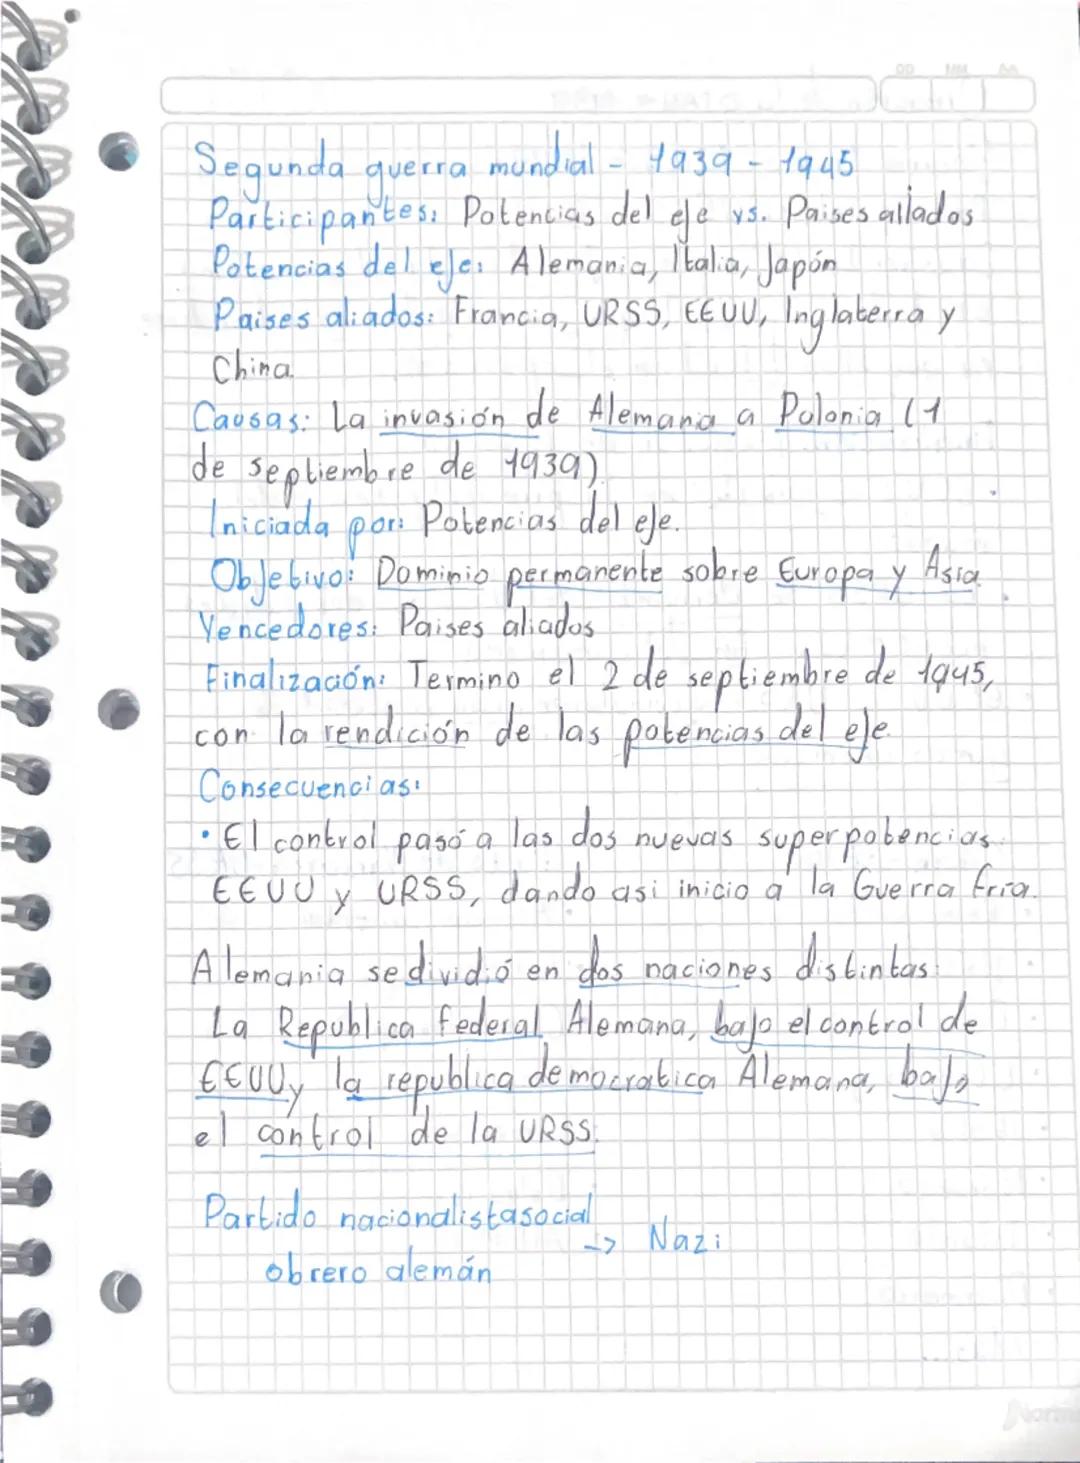 DD MM AA
Segunda guerra mundial - 1939 - 1945
Participantes: Potencias del eje vs. Paises aliados
Potencias del eje: Alemania, Italia, Japón
Paises aliados: Francia, URSS, EEUU, Inglaterra y
China
Causas: La invasión de Alemania a Polonia (1
de septiembre de 1939)
Iniciada por: Potencias del eje.
Objetivo: Dominio permanente sobre Europa y Asia
Vencedores: Paises aliados
Finalización: Termino el 2 de septiembre de 1945,
con la rendición de las potencias del eje.
Consecuencias:
• El control pasó a las dos nuevas superpotencias.
EEUU y URSS, dando asi inicio a la Guerra fria.
Alemania se dividió en dos naciones distintas:
La Republica federal Alemana, bajo el control de
EEUU y la republica democratica Alemana, bajo
el control de la URSS.
Partido nacionalistasocial
obrero alemán -> Nazi
Norma